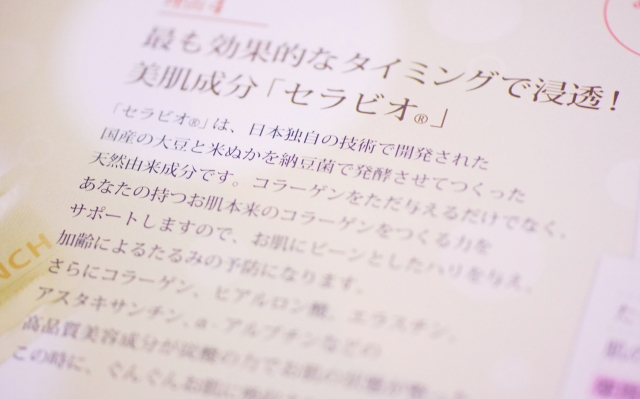 理由4
最も効果的なタイミングで浸透!
美肌成分「セラビオ®」
「セラビオ®」は、日本独自の技術で開発された
国産の大豆と米ぬかを納豆菌で発酵させてつくった
天然由来成分です。コラーゲンをただ与えるだけでなく、
あなたの持つお肌本来のコラーゲンをつくる力を
サポートしますので、お肌にピーンとしたハリを与え、
加齢によるたるみの予防になります。
さらにコラーゲン、ヒアルロン酸、エラスチン、
アスタキサンチン、α-アルブチンなどの
高品質美容成分が炭酸の力でお肌の
この時に、ぐんぐんお肌に
NCH